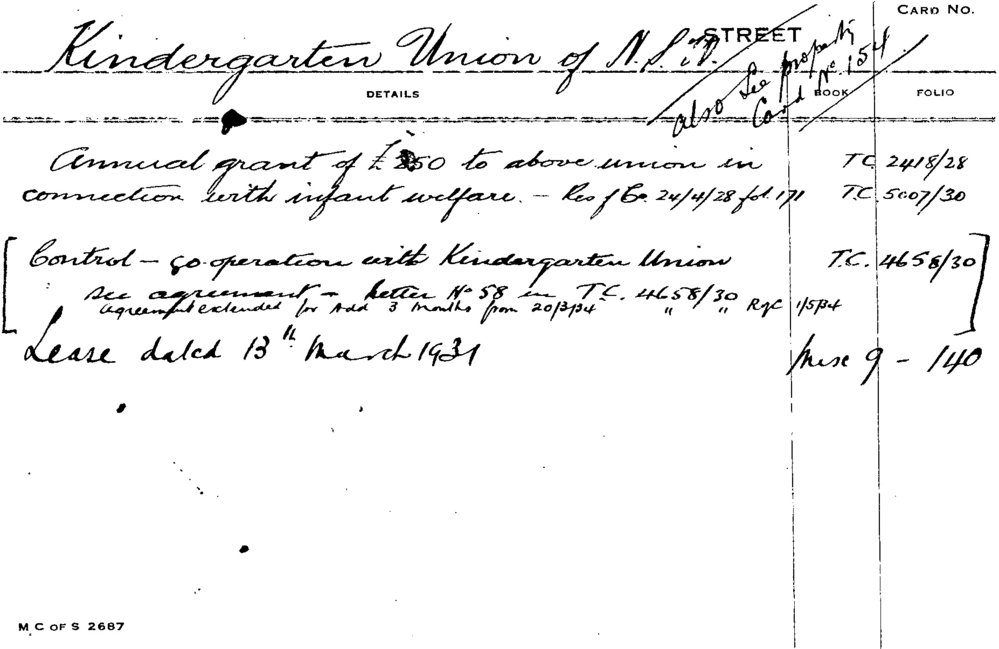 CARD NO.
STREET
Kindergarten Union of N.S.W.
also See property
Card No. 154
DETAILS
BOOK
FOLIO
Annual grant of £ 50 to above union in T.C. 2418/28
connection with infant welfare. - Res of Co. 24/4/28 fol. 171 T.C. 5007/30
Control - co-operation with Kindergarten Union T.C. 4658/30
see agreement - letter No 58 in T.C. 4658/30
agreement extended for Add 3 months from 20/3/34 " " 1/5/34
Lease dated 13th March 1931 Misc 9 - 140
M C OF S 2687